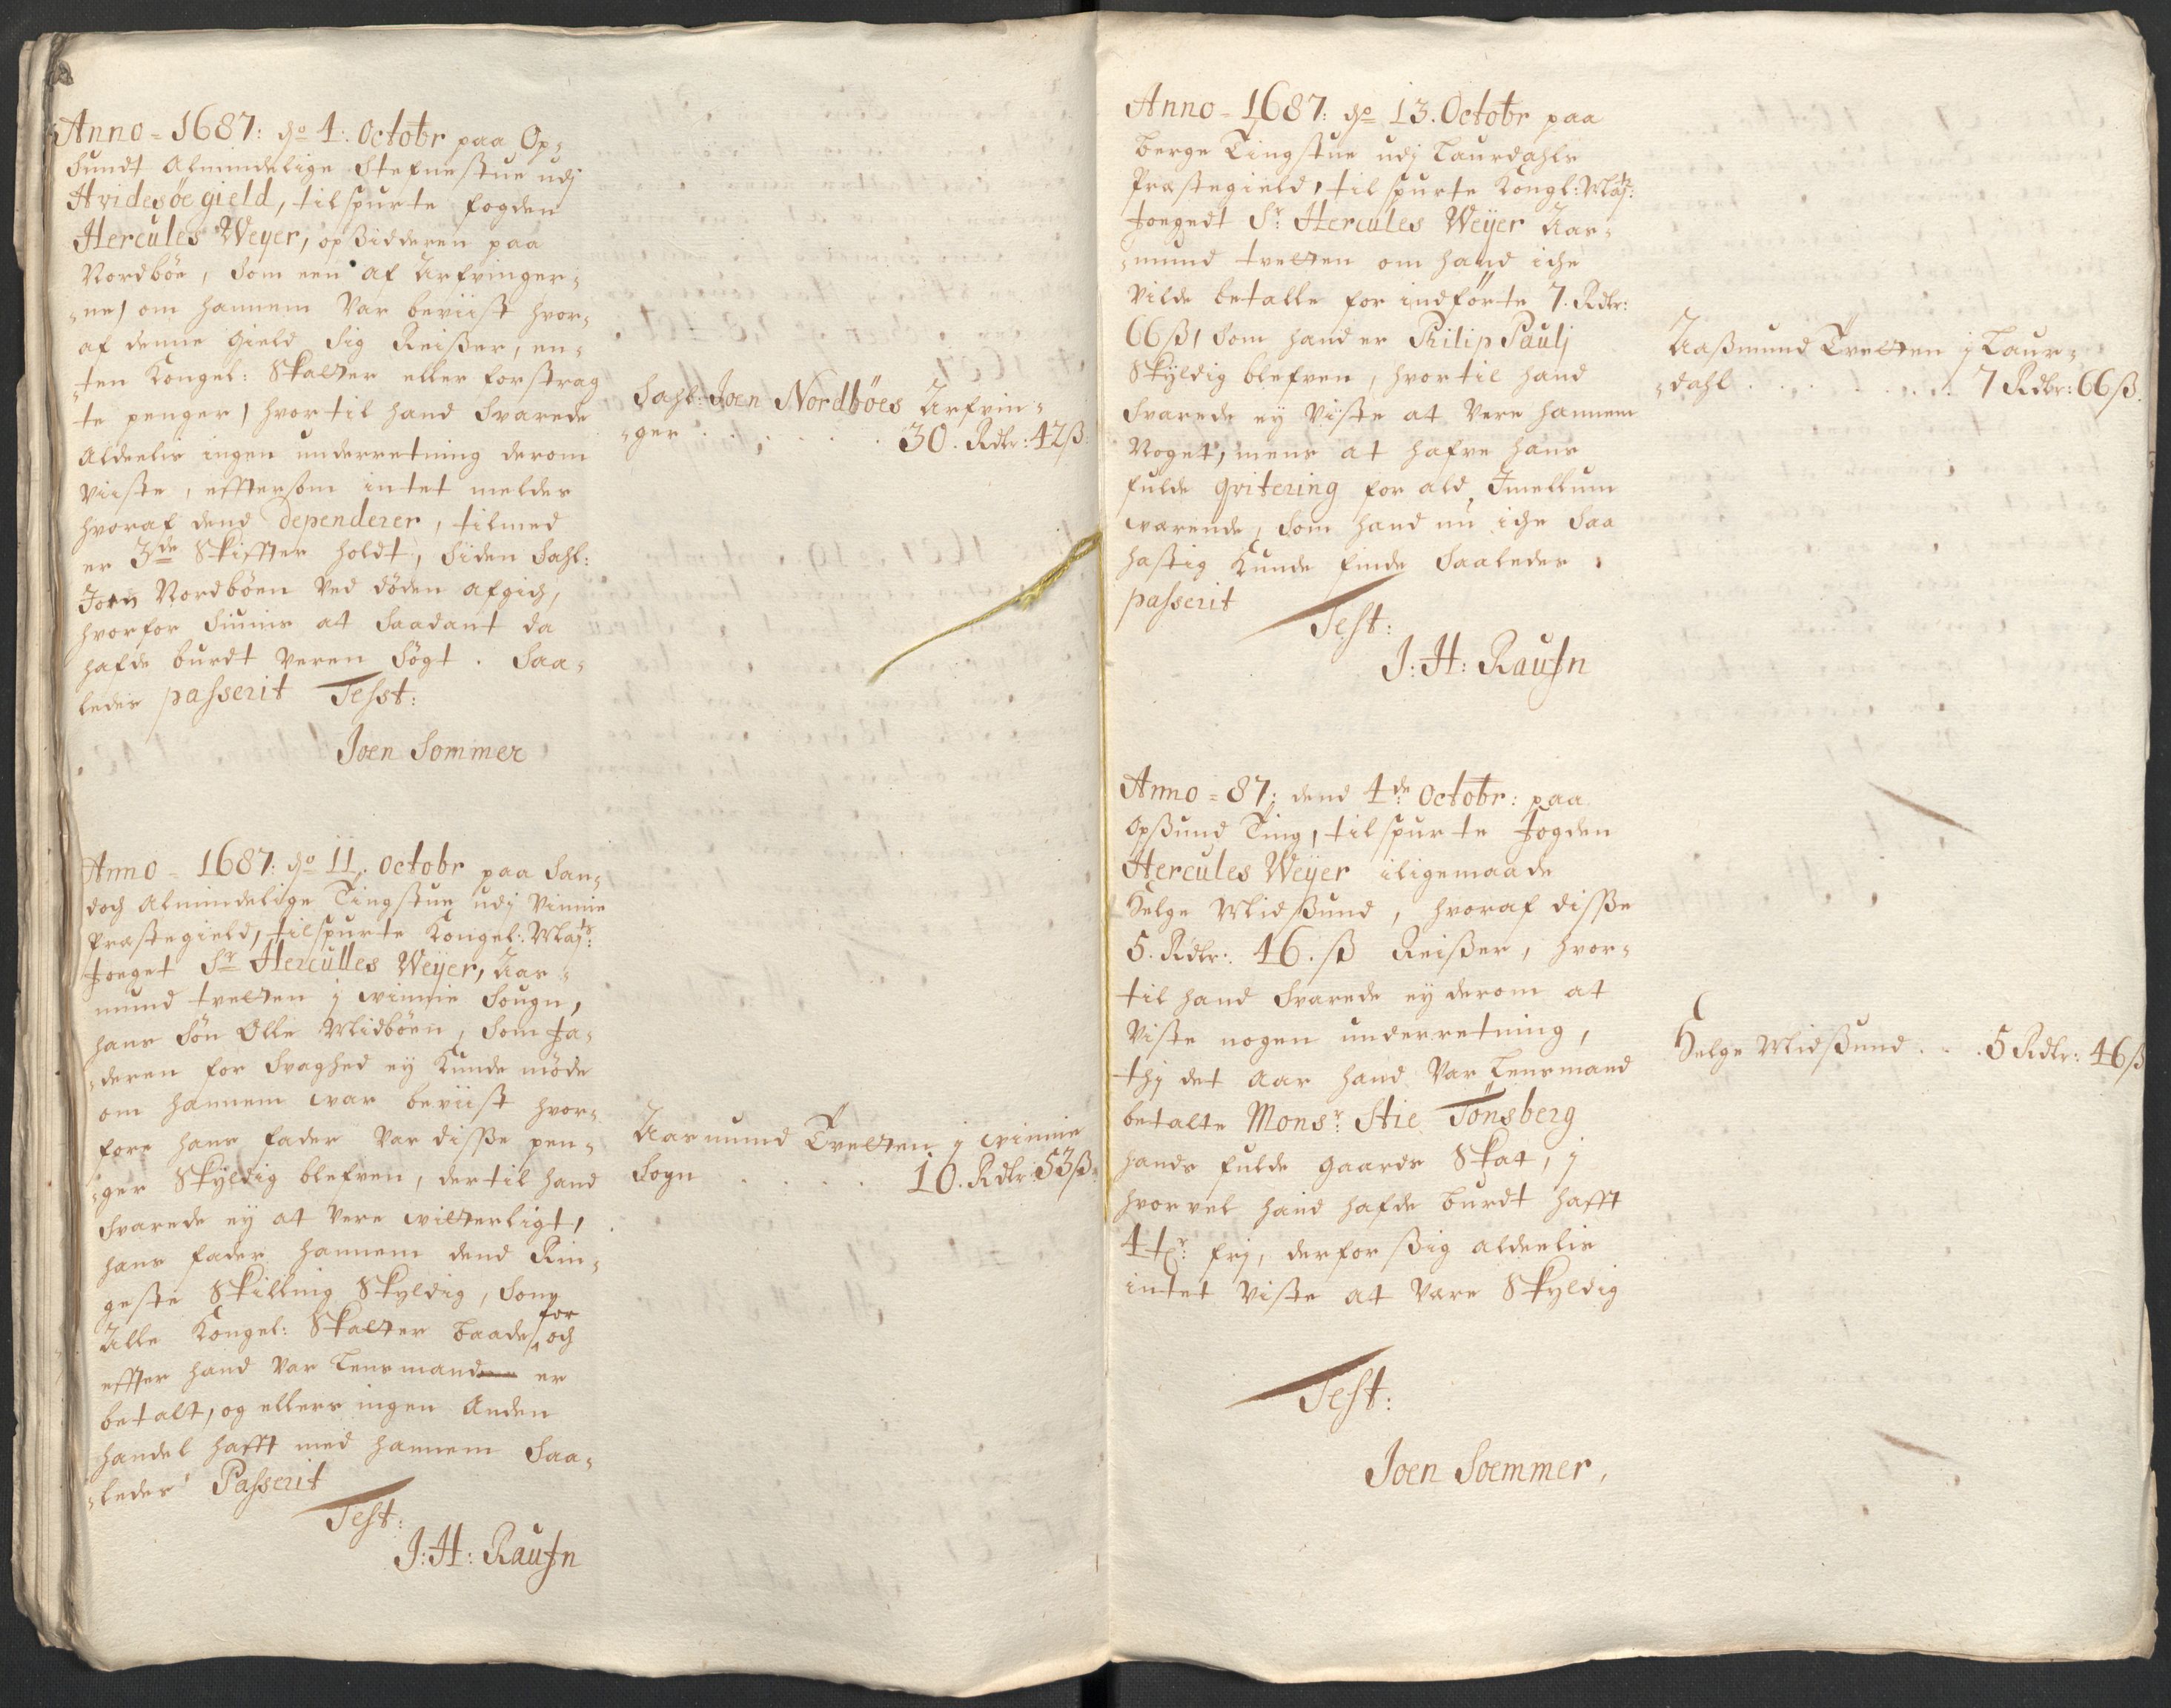 Anno = 1687: dn 4: Octobr paa Op=
sundt Almindelige Stefnestue udj
Hvidesöe gield, tilspurte fogden
Hercules Weyer, opsidderen paa
Nordböe, som een af Arfvinger=
=ne, om hannem var beviist hvor=
af denne gield sig Reisser, en=
=ten Kongel: Skatter eller forstrag
te penger, hvortil hand svarede
aldeelis ingen underretning derom
viiste, efftersom intet meldes
hvoraf dend dependerer, tilmed
er 3de Skiffter holdt, siden Sahl:
Joen Nordböen ved döden afgich,
hvorfor siunis at saadant da
hafde burdt veren sögt. Saa=
ledes passerit Testt:
Joen Sommer
Sahl: Joen Nordböes Arfvin=
=ger . . . . . . 30. Rdlr: 42 ß
Anno = 1687: dn 11. octobr paa San=
doch Almindelige Tingstue udj Vinnie
Præstegield, tilspurte Kongel: Mayts:
foeget Sr Herculles Weyer, Aas=
mund tvetten j winnie Sougn,
hans Sön Olle Midböen, som fa=
=deren for svaghed ey kunde möde
om hannem war beviist hvor=
fore hans fader var disse pen=
=ger Skyldig blefven, dertil hand
svarede ey at vere witterligt,
hans fader hannem dend Rin=
geste Skilling Skyldig, som
Alle Kongel: Skatter baade for och
effter hand var Lensmand er
betalt, og ellers ingen anden
handel hafft med hannem Saa=
=ledes Passerit
Test:
J: H: Raufn
Aasmund Tvetten j winnie
Sogn . . . . . 10. Rdlr: 53 ß
Anno = 1687: dn 13. Octobr paa
Berge Tingstue udj Laurdahls
Præstegield, tilspurte Kongl: Mayts:
foegedt Sr: Hercules Weyer Aas=
=mund tvetten om hand iche
vilde betalle for indförte 7. Rdlr:
66 ß, som hand er Philip Paulj
Skyldig blefven, hvortil hand
svarede ey viste at vere hannem
noget, mens at hafve hans
fulde qvitering for ald Imellum
wærende, som hand nu iche saa
hastig kunde finde Saaledes
passerit
Test:
J: H: Raufn
Aassmund Tvetten j Laur=
=dahl . . . . . . . 7 Rdlr: 66 ß.
Anno = 87: dend 4de Octobr: paa
Opssund Ting, tilspurte fogden
Hercules Weyer iligemaade
Helge Midssund, hvoraf disse
5. Rdlr: 46. ß Reisser, hvor=
til hand svarede ey derom at
viste nogen underretning,
thj det aar hand var Lensmand
betalte Monsr: Stie Tönsberg
hands fulde gaards Skat, j
hvorvel hand hafde burdt hafft
4 tr: frj, derfor ssig aldeelis
intet viste at være Skyldig
Test:
Joen Soemmer,
Helge Midssund . . . 5 Rdlr: 46 ß